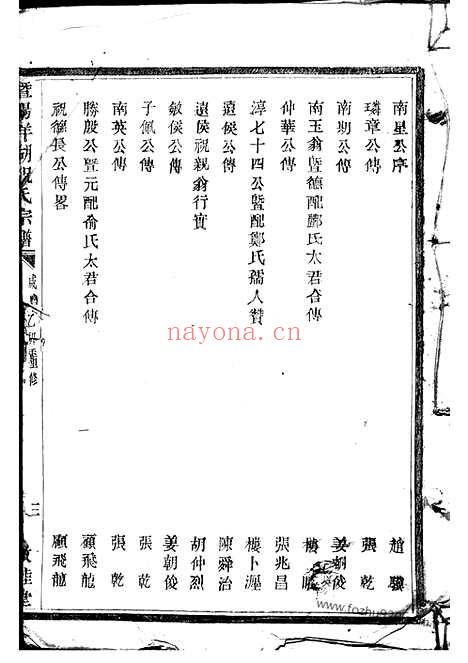 南星公序 趙
璘章公傳 張乾
南期公傳 姜朝俊
南玉翁暨德配酈氏太君合傳 樓
仲華公傳 張兆昌
淳七十四公暨配鄭氏孺人贊 樓卜瀍
遠侯公傳 陳舜治
遠侯祝親翁行實 胡仲烈
敏侯公傳 姜朝俊
子佩公傳 張乾
南英公傳 張乾
勝殷公暨元配俞氏太君合傳 顧飛龍
祝德長公傳畧 顧飛龍
暨陽洋湖祝氏宗譜 重修 三
nayona.cn